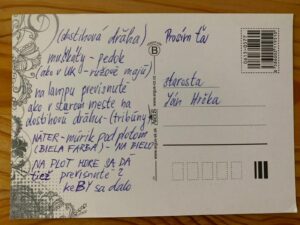 (dostihová dráha)
muškáty - pedok
(ako v UK - ružové majú)
na lampu previsnuté
ako v starom meste na
dostihovú dráhu - (tribúny)
NÁTER - múrik pod plotom
(BIELA FARBA) - NA BIELO
NA PLOT HORE SA DÁ
tiež previsnuté?
keBY sa dalo
Prosím Ťa
starosta
Ján Hrčka
B